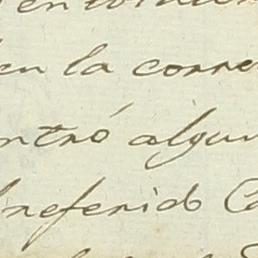 en la corre
ntró algun
referido C